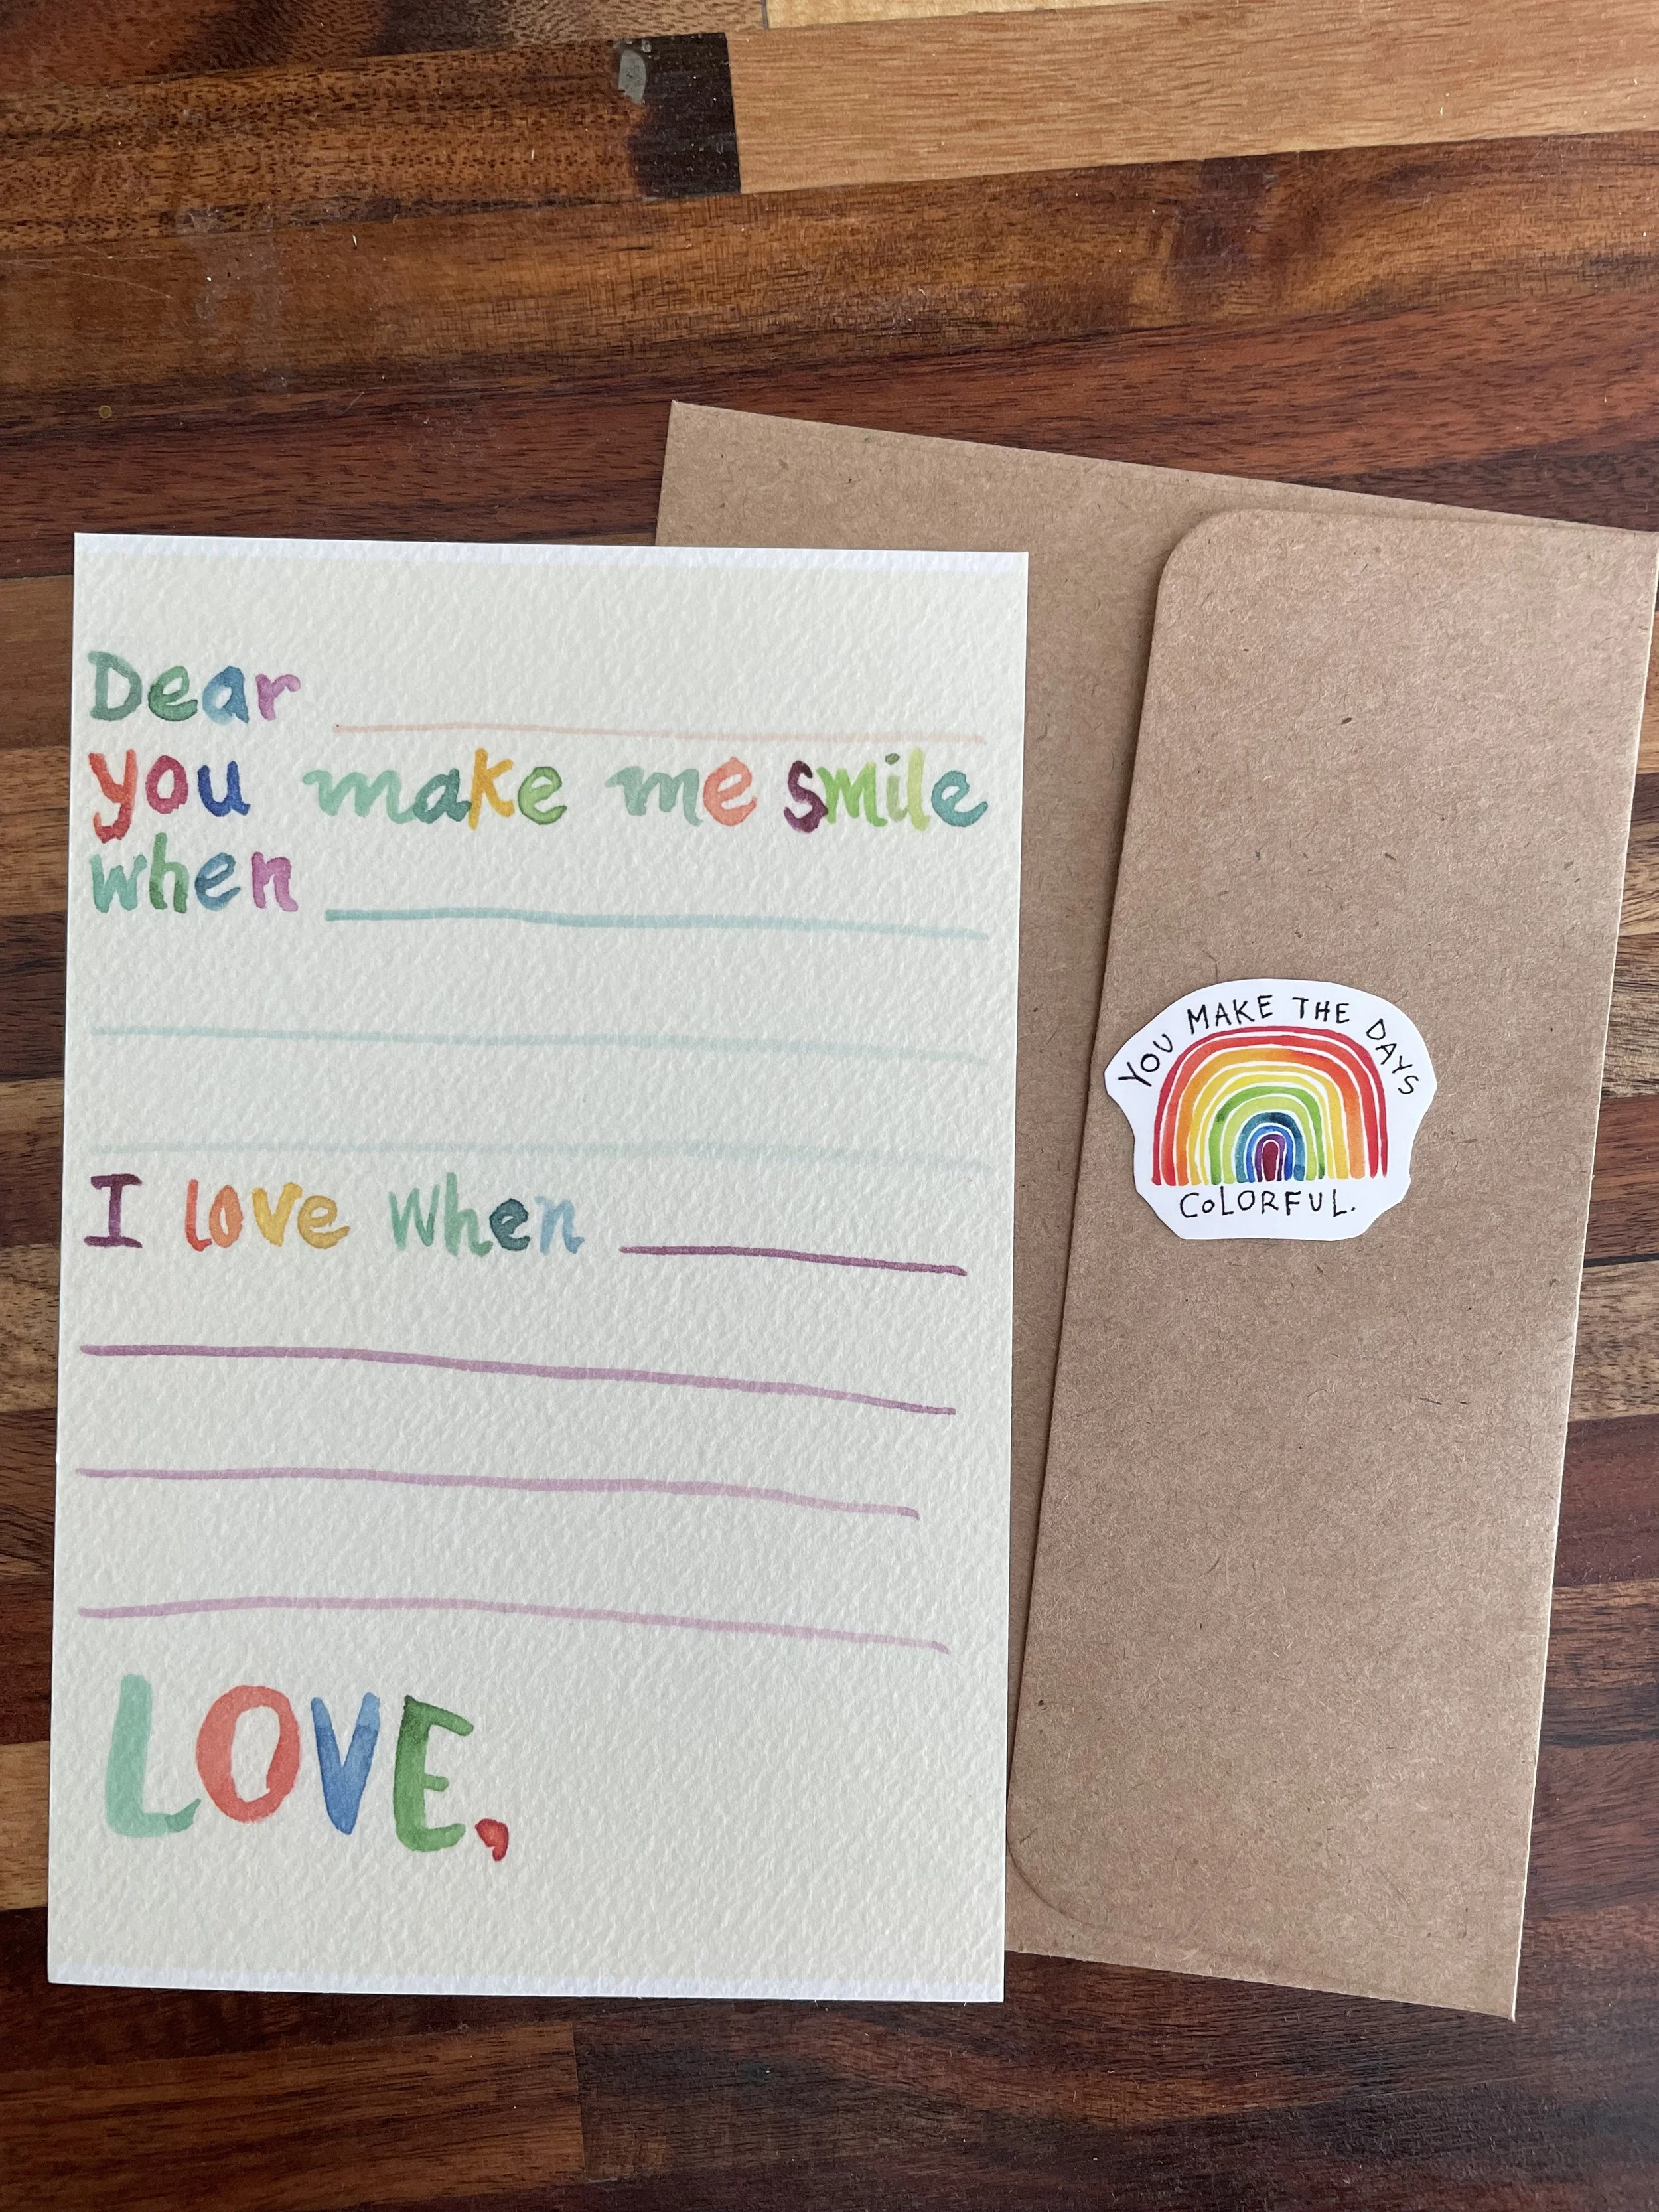 Dear
you make me smile
when
I love when
LOVE,
YOU MAKE THE DAYS
COLORFUL.